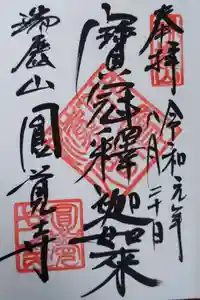 奉拝
令和元年
八月三十日
寶冠釋迦如来
瑞鹿山
圓覺寺